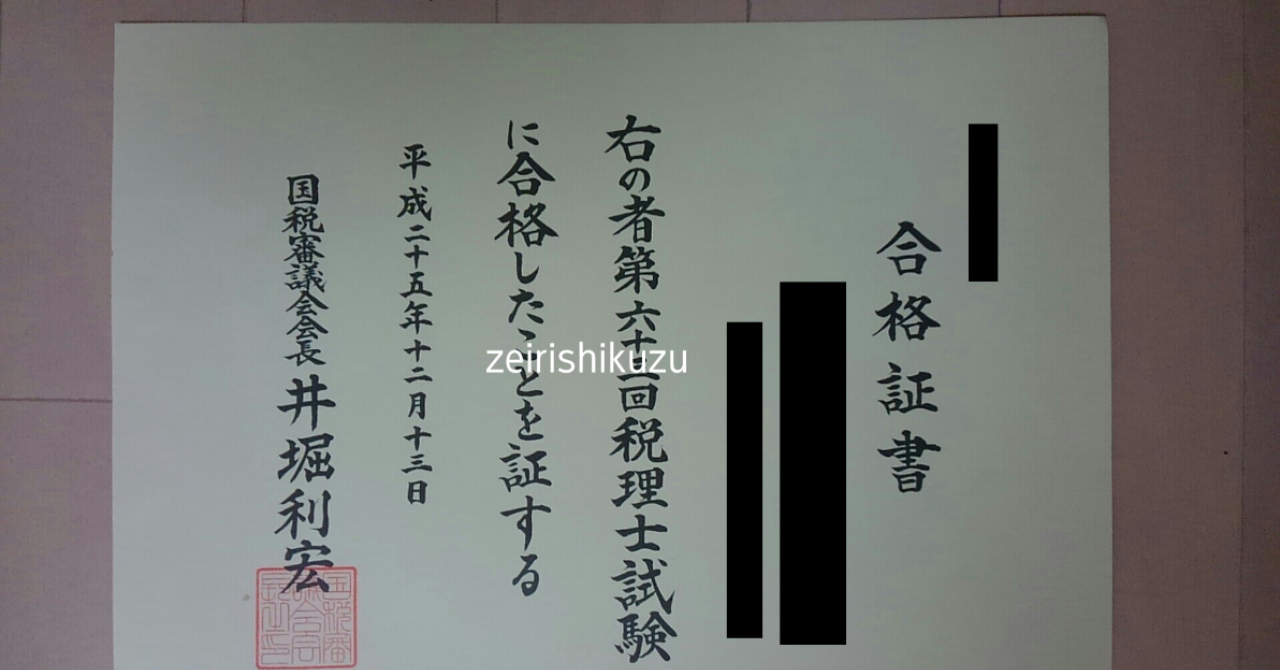 合格証書
右の者第六十三回税理士試験
に合格したことを証する
平成二十五年十二月十三日
国税審議会会長 井堀利宏
国税審
議会会
長之印
zeirishikuzu